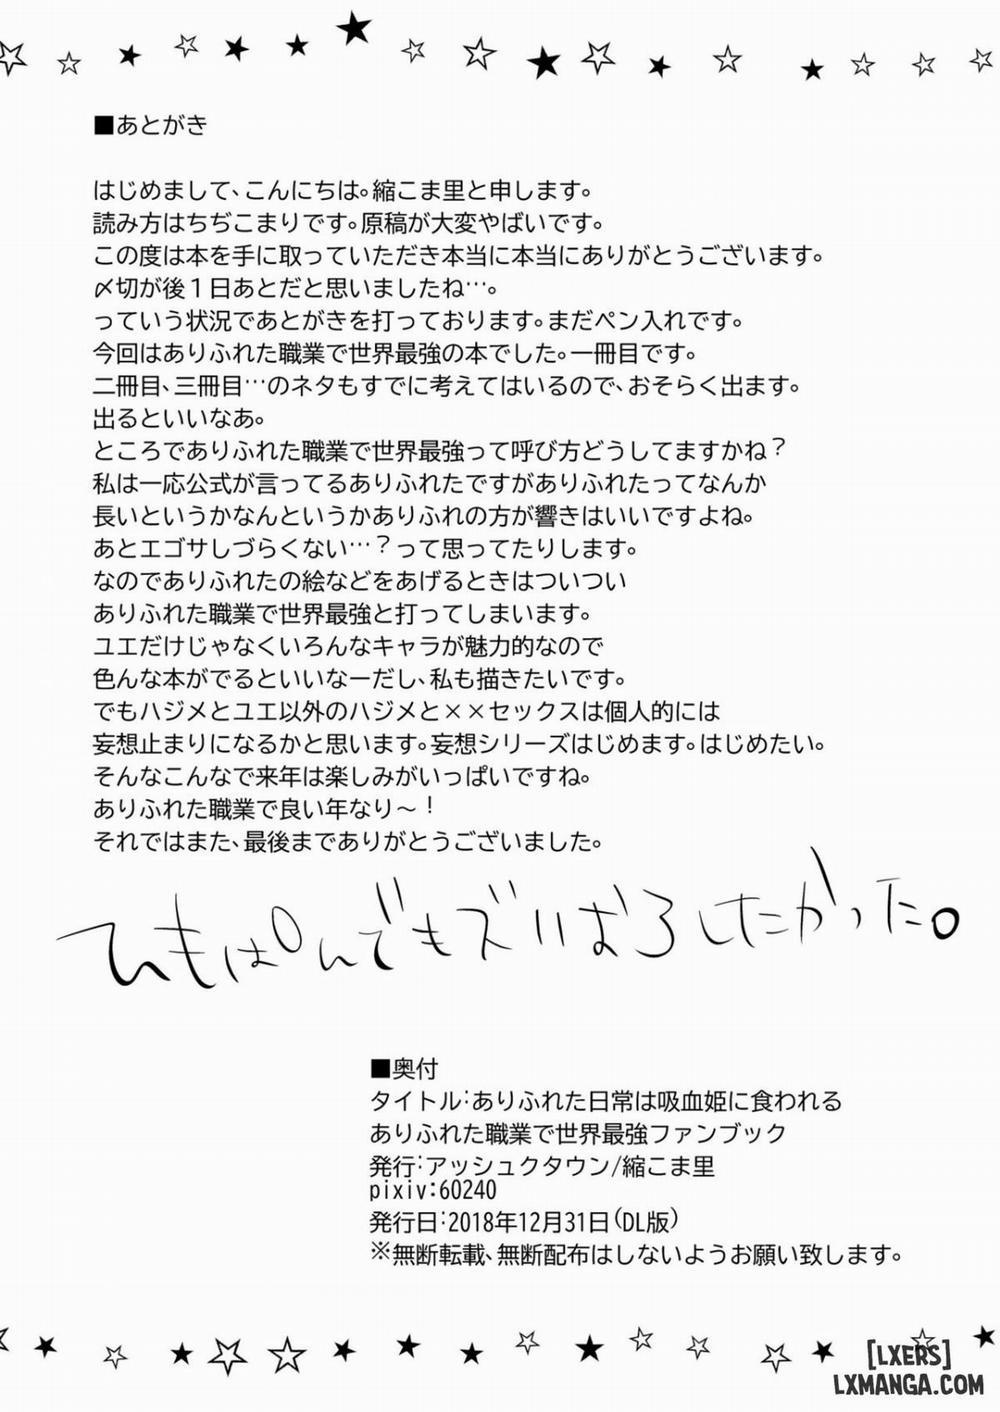 ■あとがき
はじめまして、こんにちは。縮こま里と申します。
読み方はちぢこまりです。原稿が大変やばいです。
この度は本を手に取っていただき本当に本当にありがとうございます。
〆切が後１日あとだと思いましたね…。
っていう状況であとがきを打っております。まだペン入れです。
今回はありふれた職業で世界最強の本でした。一冊目です。
二冊目、三冊目…のネタもすでに考えてはいるので、おそらく出ます。
出るといいなあ。
ところでありふれた職業で世界最強って呼び方どうしてますかね？
私は一応公式が言ってるありふれたですがありふれたってなんか
長いというかなんというかありふれの方が響きはいいですよね。
あとエゴサしづらくない…？って思ってたりします。
なのでありふれたの絵などをあげるときはついつい
ありふれた職業で世界最強と打ってしまいます。
ユエだけじゃなくいろんなキャラが魅力的なので
色んな本がでるといいなーだし、私も描きたいです。
でもハジメとユエ以外のハジメと××セックスは個人的には
妄想止まりになるかと思います。妄想シリーズはじめます。はじめたい。
そんなこんなで来年は楽しみがいっぱいですね。
ありふれた職業で良い年なり～！
それではまた、最後までありがとうございました。
ひもぱんでもズリおろしたかった。
■奥付
タイトル:ありふれた日常は吸血姫に食われる
ありふれた職業で世界最強ファンブック
発行:アッシュクタウン/縮こま里
pixiv:60240
発行日:2018年12月31日(DL版)
※無断転載、無断配布はしないようお願い致します。
[LXERS]
LXMANGA.COM